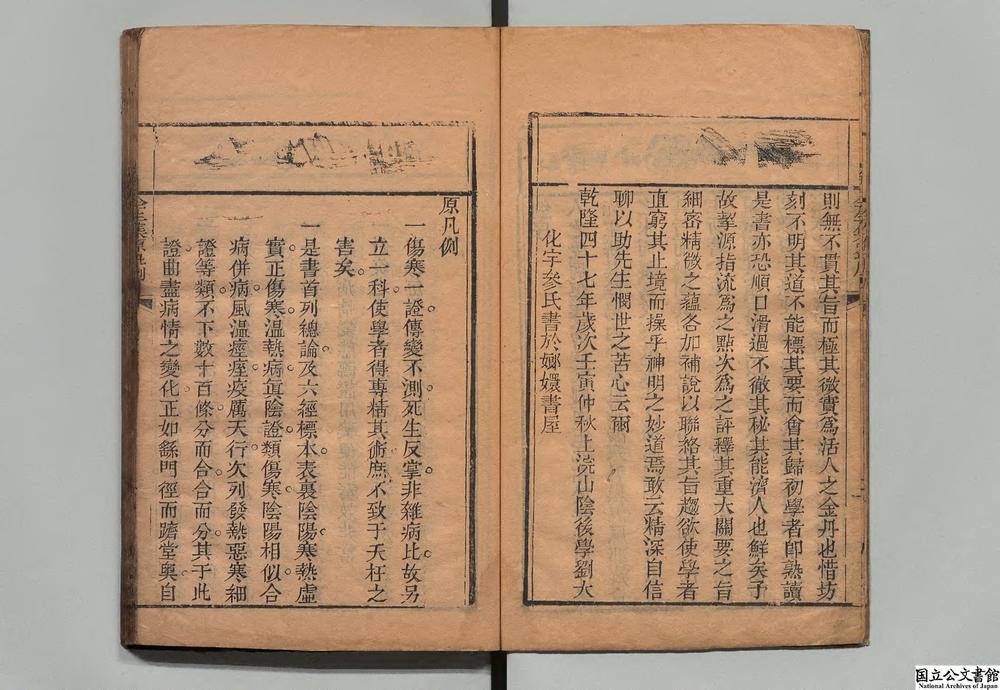 則無不貫其旨而極其微實為活人之金丹也惜坊
刻不明其道不能標其要而會其歸初學者即熟讀
是書亦恐順口滑過不徹其秘其能濟人也鮮矣予
故挈源指流為之點次為之評釋其重大關要之旨
細密精微之蘊各加補說以聯絡其旨趨欲使學者
直窮其止境而操乎神明之妙道焉敢云精深自信
聊以助先生憫世之苦心云爾
乾隆四十七年歲次壬寅仲秋上浣山陰後學劉大
化宇參氏書於嫏嬛書屋
原凡例
一傷寒一證傳變不測死生反掌非雜病比故另
立分科使學者得專精其術庶不致于夭枉之
害矣
一是書首列總論及六經標本表裏陰陽寒熱虛
實正傷寒溫熱病直陰證類傷寒陰陽相似合
病併病風溫痙痓疫厲天行次列發熱惡寒細
證等類不下數十百條分而合合而分其于此
證曲盡病情之變化正如繇門徑而躋堂奧自
国立公文書館
National Archives of Japan